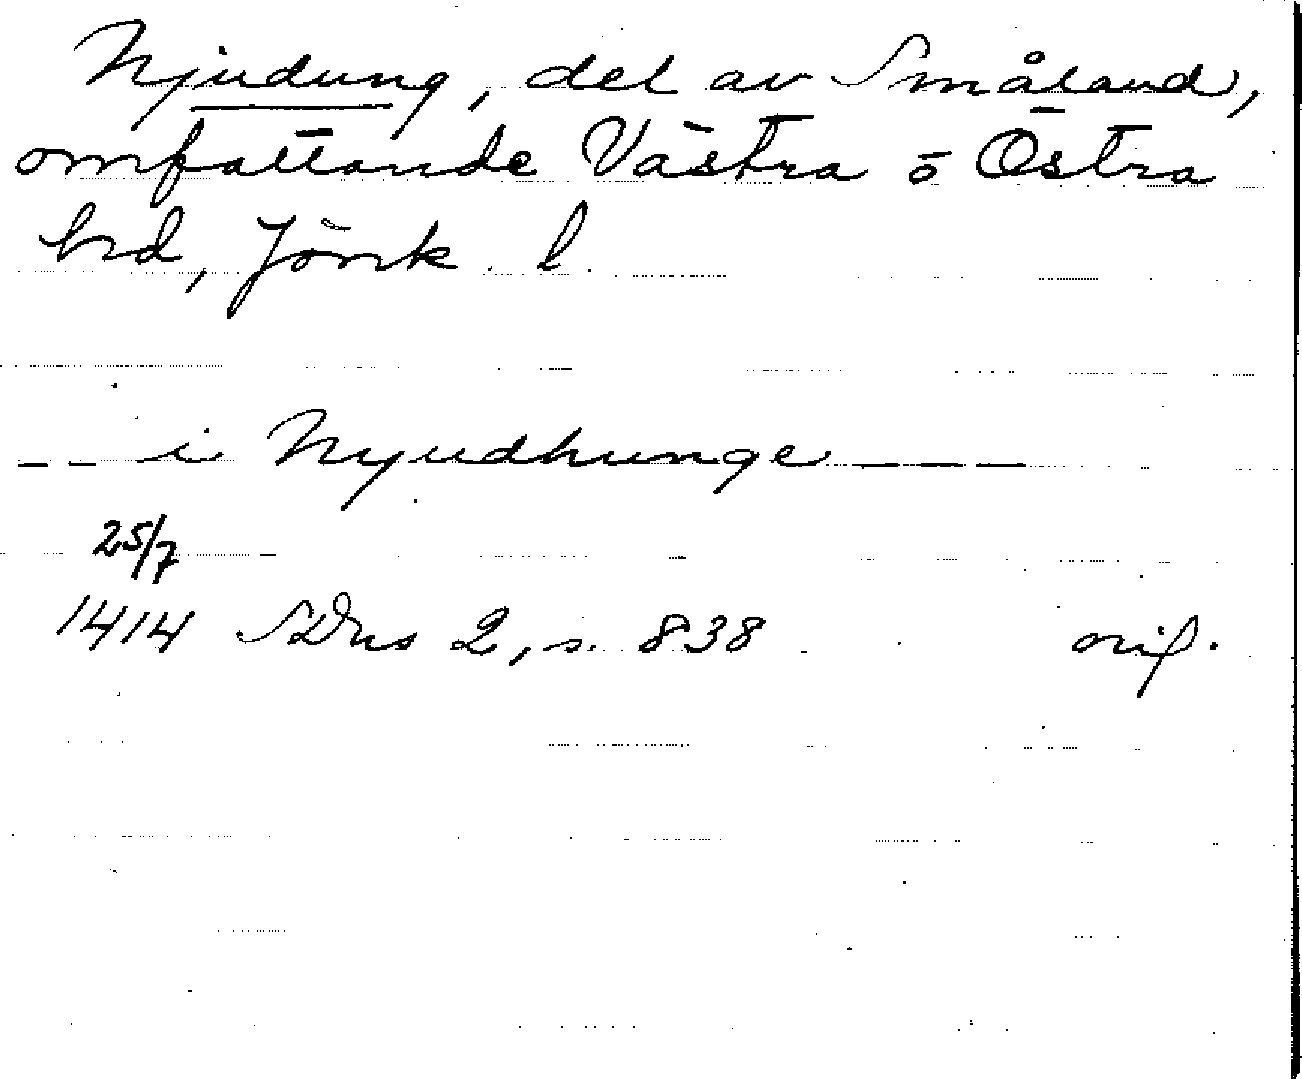 Njudung, del av Småland,
omfattande Västra o Östra
hd, Jönk. l.
- - i Nyudhunge - - -
25/7
1414 SDns 2, s. 838 orig.